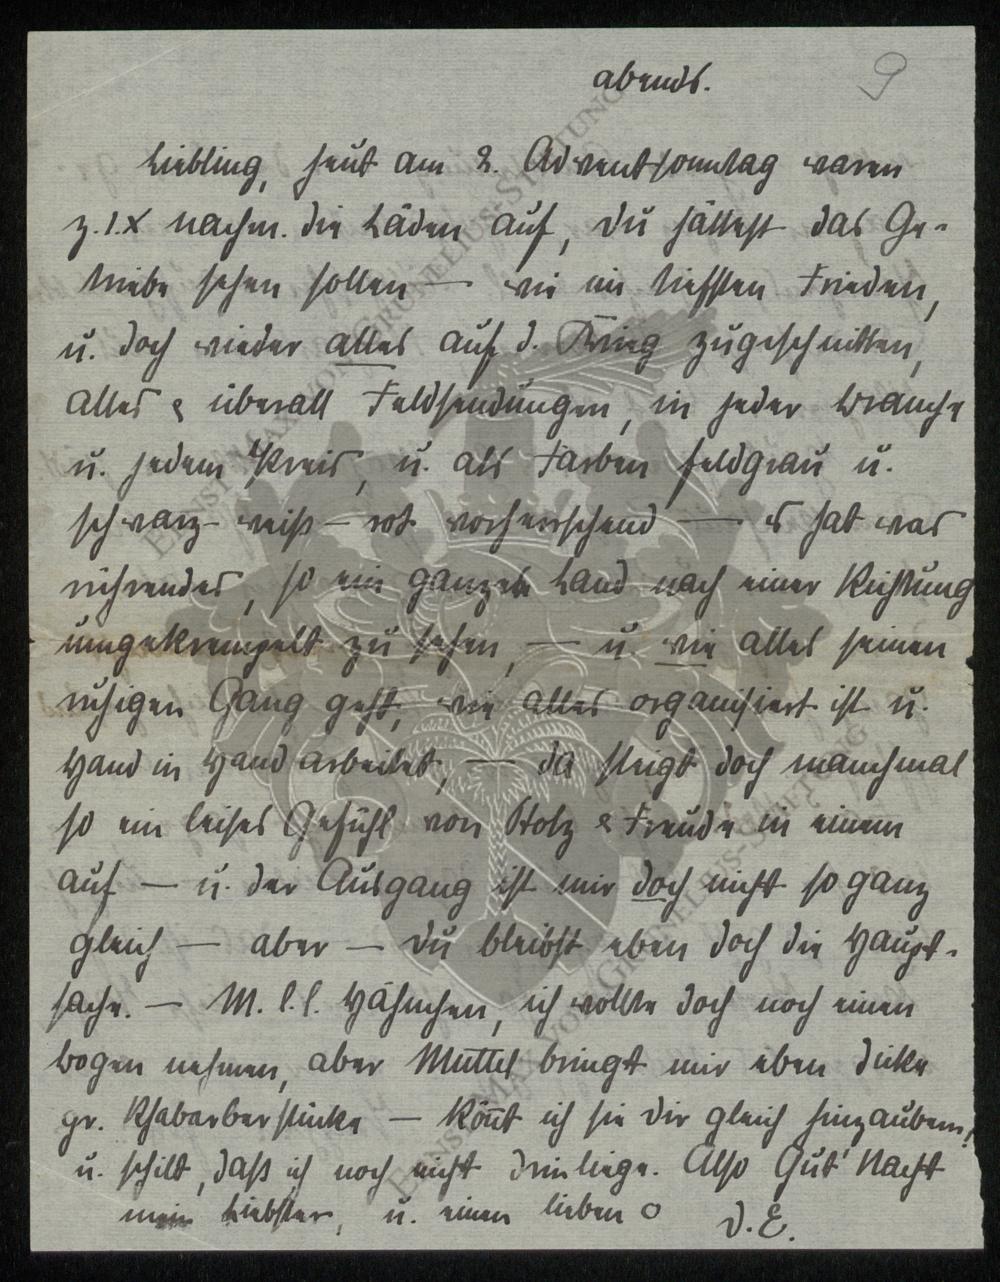 9
abends.
Liebling, heut am 2. Adventsonntag waren
z. 1. x nachm. die Läden auf, du hättest das Ge-
triebe sehen sollen — wie im tiefsten Frieden,
u. doch wieder alles auf d. Krieg zugeschnitten,
alles & überall Feldsendungen, in jeder Branche
u. jedem Kreis, u. als Farben feldgrau u.
schwarz-weiß-rot vorherrschend — es hat was
rührendes, so ein ganzes Land nach einer Richtung
umgekrempelt zu sehen, — u. wie alles seinen
ruhigen Gang geht, wie alles organisiert ist u.
Hand in Hand arbeitet, — da steigt doch manchmal
so ein leises Gefühl von Stolz & Freude in einem
auf — u. der Ausgang ist mir doch nicht so ganz
gleich — aber — du bleibst eben doch die Haupt-
sache. — M. l. l. Hähnchen, ich wollte doch noch einen
bogen nehmen, aber Muttel bringt mir eben dicke
gr. Rhabarberstücke — könt ich sie dir gleich hinzaubern!
u. schilt, daß ich noch nicht drinliege. Also Gut' Nacht
mein Liebster, u. einen lieben o D. E.
ERNST MAX VON GRUNELIUS-STIFTUNG
ERNST MAX VON GRUNELIUS-STIFTUNG